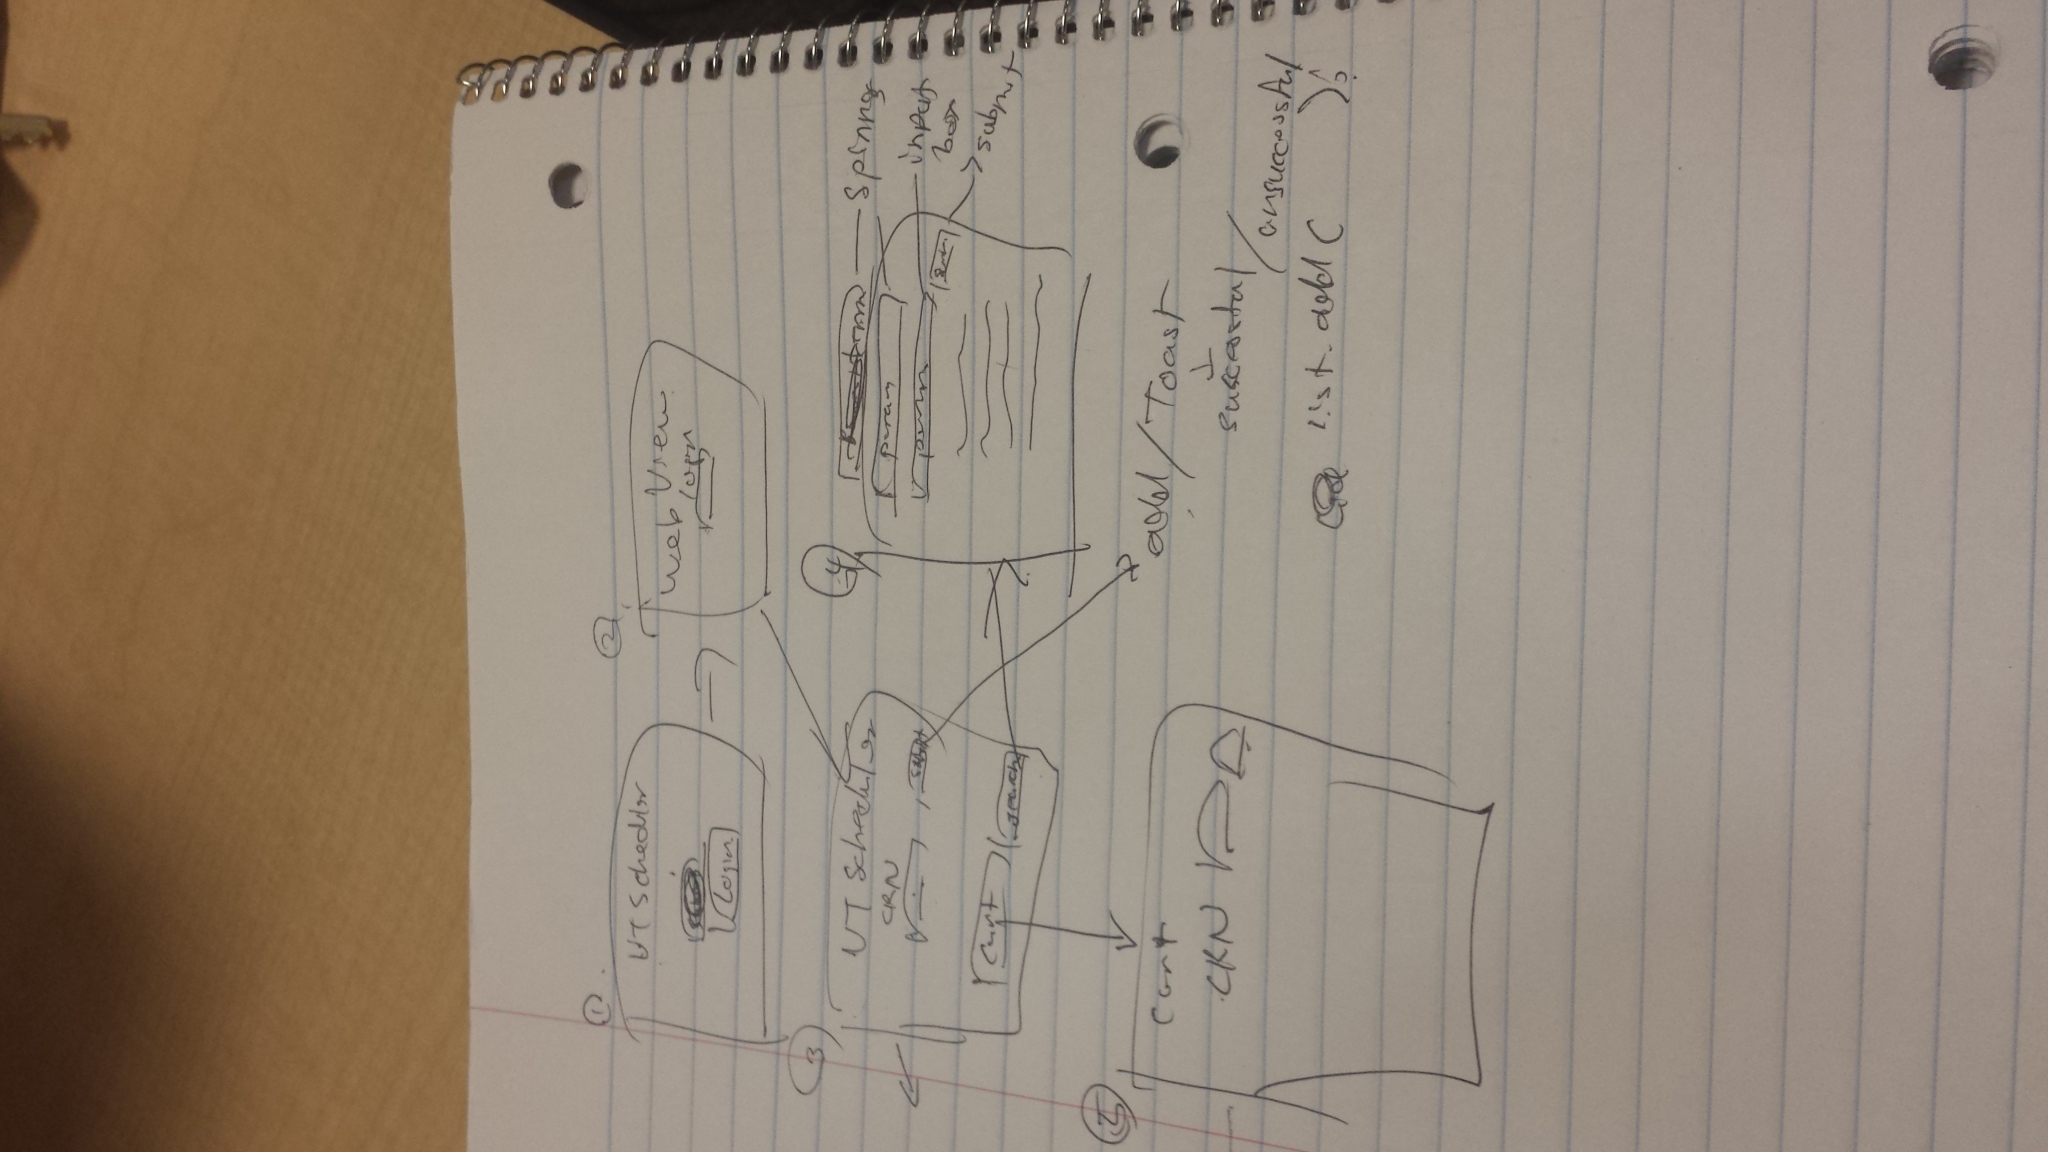 ①
VT Scheduler
Login
②
Web View
login
③
VT Scheduler
CRN
submit
Cart
search
④
Spinner
param
param
input
box
submit
⑤
Cart
CRN
add / Toast
successful / unsuccessful
list.add ( );